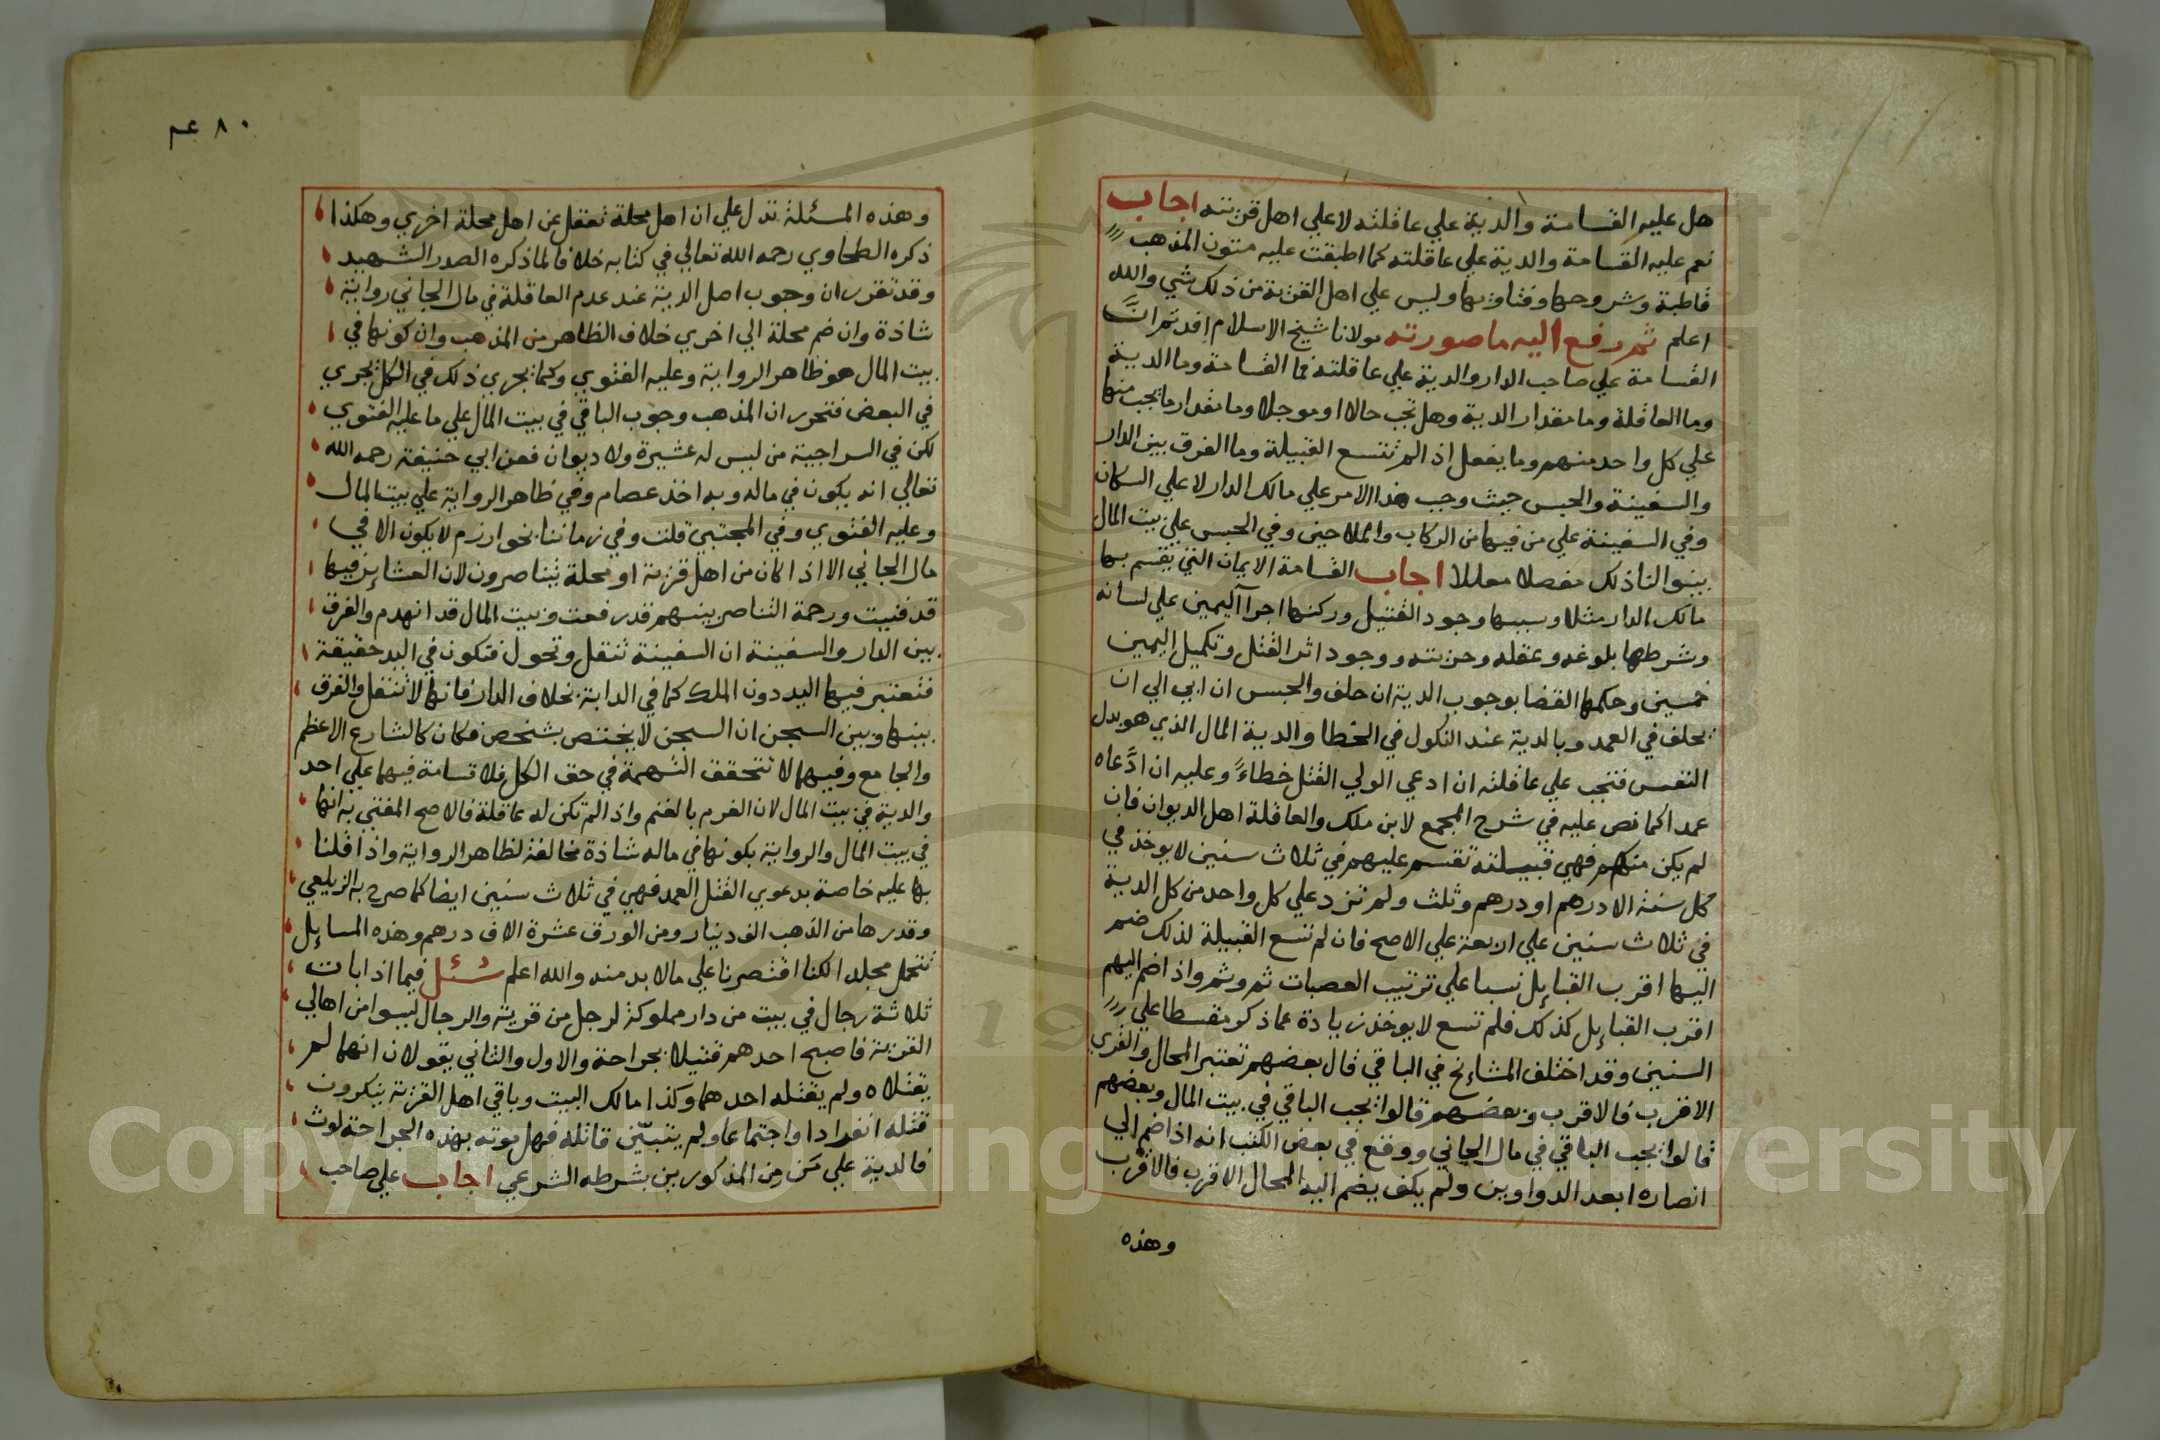 هل عليه القسامة والدية علي عاقلته لا علي اهل قريته اجاب
نعم عليه القسامة والدية علي عاقلته كما اطبقت عليه متون المذهب
قاطبة وشروحها وفتاويها وليس علي اهل القرية من ذلك شي والله
اعلم ثم رفع اليه ما صورته مولانا شيخ الاسلام افدتم ان
القسامة علي صاحب الدار والدية علي عاقلته فما القسامة وما الدية
وما العاقلة وما مقدار الدية وهل تجب حالا او موجلا وما مقدار ما يجب منها
علي كل واحد منهم وما يفعل اذا لم تتسع القبيلة وما الفرق بين الدار
والسفينة والحبس حيث وجب هذا الامر علي مالك الدار لا علي السكان
وفي السفينة علي من فيها من الركاب والملاحين وفي الحبس علي بيت المال
بينوا لنا ذلك مفصلا معللا اجاب القسامة الايمان التي يقسم بها
مالك الدار مثلا وسببها وجود القتيل وركنها اجرا اليمين علي لسانه
وشرطها بلوغه وعقله وحريته ووجود اثر القتل وتكميل اليمين
خمسين وحكمها القضا بوجوب الدية ان حلف والحبس ان ابي الي ان
يحلف في العمد وبالدية عند النكول في الخطا والدية المال الذي هو بدل
النفس فتجب علي عاقلته ان ادعي الولي القتل خطاءً وعليه ان ادَّعاه
عمدا كما نص عليه في شرح المجمع لابن ملك والعاقلة اهل الديوان فان
لم يكن منهم فهي قبيلته تقسم عليهم في ثلاث سنين لا يوخذ في
كل سنة الا درهم او درهم وثلث ولم تزد علي كل واحد من كل الدية
في ثلاث سنين علي اربعة علي الاصح فان لم تتسع القبيلة لذلك ضم
اليها اقرب القبايل نسبا علي ترتيب العصبات ثم وثم واذا ضم اليهم
اقرب القبايل كذلك فلم تتسع لا يوخذ زيادة عما ذكر مقسطا علي
السنين وقد اختلف المشائخ في الباقي قال بعضهم تعتبر المحال والقري
الاقرب فالاقرب وبعضهم قالوا يجب الباقي في بيت المال وبعضهم
قالوا يجب الباقي في مال الجاني ووقع في بعض الكتب انه اذا ضم الي
انصاره ابعد الدواوين ولم يكف يضم اليه المحال الاقرب فالاقرب
وهذه
٨٠
وهذه المسئلة تدل علي ان اهل محلة تعقل عن اهل محلة اخري وهكذا
ذكره الطحاوي رحمه الله تعالي في كتابه خلافا لما ذكره الصدر الشهيد
وقد تقرر ان وجوب اصل الدية عند عدم العاقلة في مال الجاني رواية
شاذة وان ضم محلة الي اخري خلاف الظاهر من المذهب وان كونها في
بيت المال هو ظاهر الرواية وعليه الفتوي وكما يجري ذلك في الكل يجري
في البعض فتحرر ان المذهب وجوب الباقي في بيت المال علي ما عليه الفتوي
لكن في السراجية من ليس له عشيرة ولا ديوان فعن ابي حنيفة رحمه الله
تعالي انه يكون في ماله وبه اخذ عصام وفي ظاهر الرواية علي بيت المال
وعليه الفتوي وفي المجتبي قلت وفي زماننا بخوارزم لا يكون الا في
مال الجاني الا اذا كان من اهل قرية او محلة يتناصرون لان العشاير فيها
قد فنيت ورحمة التناصر بينهم قد رفعت وبيت المال قد انهدم والفرق
بين الدار والسفينة ان السفينة تنقل وتحول فتكون في اليد حقيقة
فتعتبر فيها اليد دون الملك كما في الدابة بخلاف الدار فانها لا تنتقل والفرق
بينها وبين السجن ان السجن لا يختص بشخص فكان كالشارع الاعظم
والجامع وفيهما لا تتحقق التهمة في حق الكل فلا قسامة فيهما علي احد
والدية في بيت المال لان الغرم بالغنم واذا لم تكن له عاقلة فالاصح المفتي به انها
في بيت المال والرواية بكونها في ماله شاذة مخالفة لظاهر الرواية واذا قلنا
بها عليه خاصة بدعوي القتل العمد فهي في ثلاث سنين ايضا كما صرح به الزيلعي
وقدرها من الذهب الف دينار ومن الورق عشرة الاف درهم وهذه المسايل
تحتمل مجلدا لكنا اقتصرنا علي ما لا بد منه والله اعلم سئل فيما اذا بات
ثلاثة رجال في بيت من دار مملوكة لرجل من قرية والرجال ليسوا من اهالي
القرية فاصبح احدهم قتيلا بجراحة والاول والثاني يقولان انهما لم
يقتلاه ولم يقتله احدهما وكذا مالك البيت وباقي اهل القرية ينكرون
قتله انفرادا واجتماعا ولم يتبيّن قاتله فهل موته بهذه الجراحة لوث
فالدية علي من من المذكورين بشرطه الشرعي اجاب علي صاحب
Copyright © King Saud University